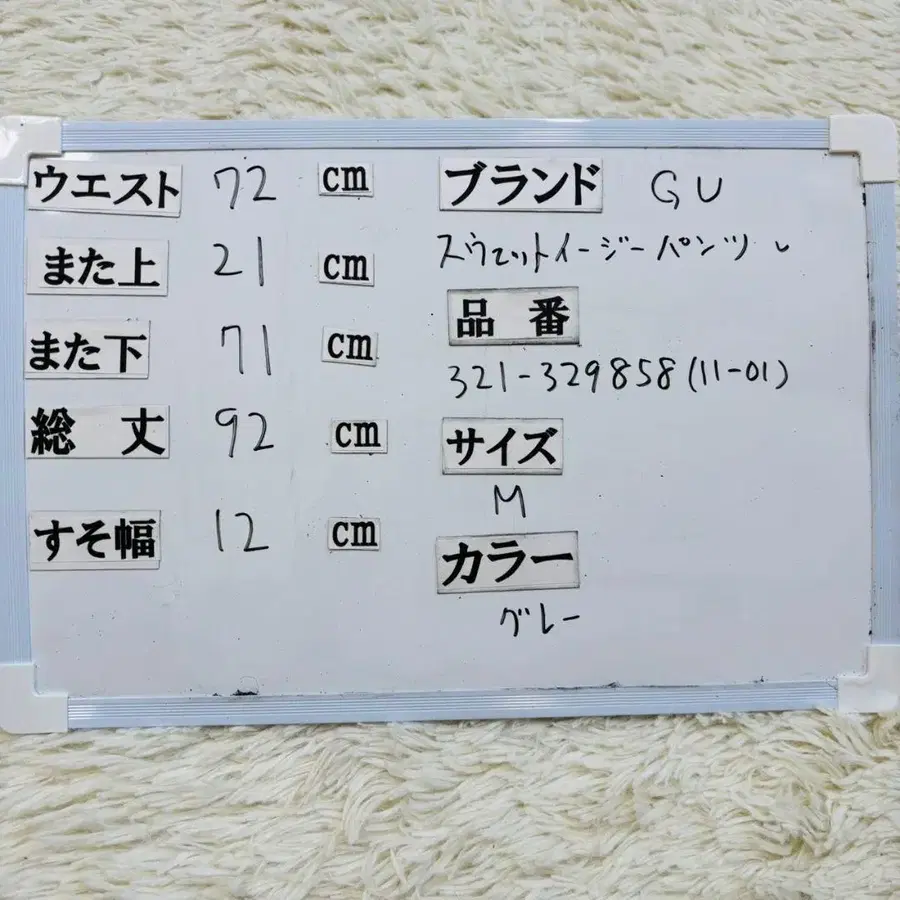 ウエスト 72 cm
また上 21 cm
また下 71 cm
総丈 92 cm
すそ幅 12 cm
ブランド GU
スウェットイージーパンツ
品番
321-329858(11-01)
サイズ
M
カラー
グレー